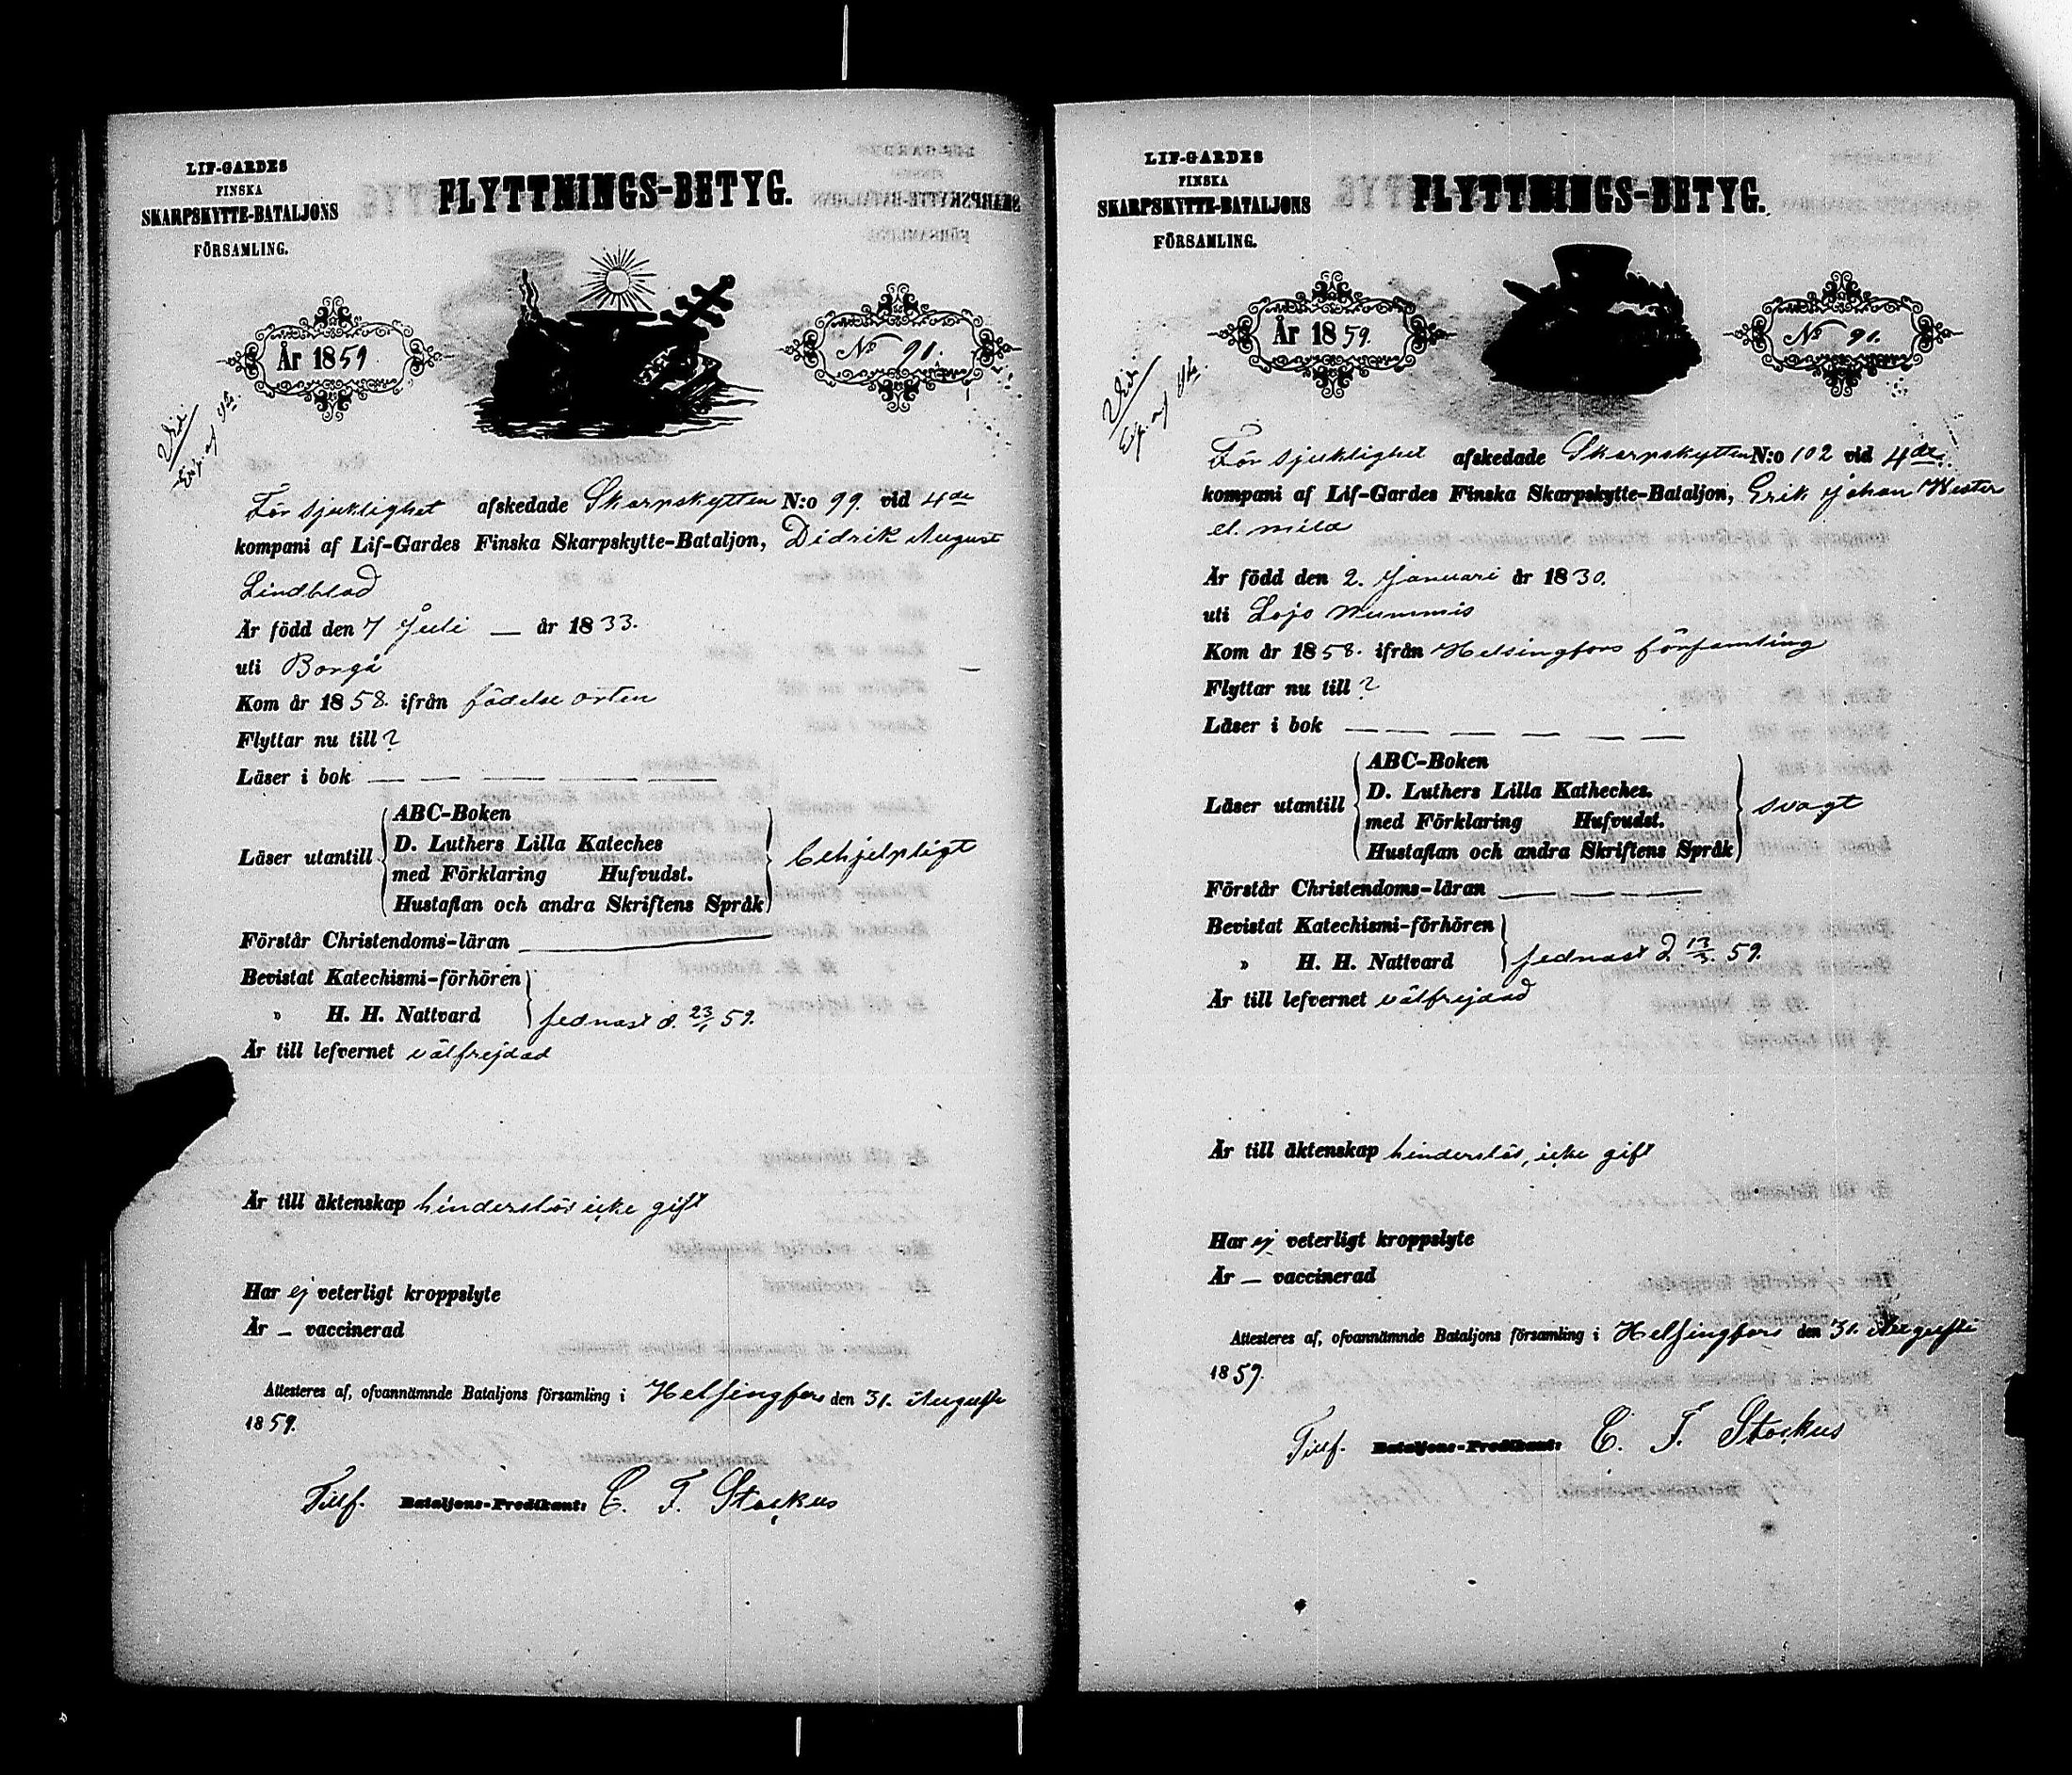 LIF-GARDES
FINSKA
SKARPSKYTTE-BATALJONS
FÖRSAMLING.
FLYTTNINGS-BETYG.
År 1859
No 91.
För sjuklighet afskedade Skarpskytten N:o 99. vid 4de
kompani af Lif-Gardes Finska Skarpskytte-Bataljon, Didrik August
Lindblad
Är född den 7 Juli — år 1833.
uti Borgå
Kom år 1858. ifrån födelse orten
Flyttar nu till ?
Läser i bok — — — — —
Läser utantill
ABC-Boken
D. Luthers Lilla Kateches
med Förklaring Hufvudst.
Hustaflan och andra Skriftens Språk
behjelpligt
Förstår Christendoms-läran —
Bevistat Katechismi-förhören
" H. H. Nattvard
sednast d. 23/1 59.
Är till lefvernet välfrejdad
Är till äktenskap hinderslös icke gift
Har ej veterligt kroppslyte
Är — vaccinerad
Attesteres af, ofvannämnde Bataljons församling i Helsingfors den 31. Augusti
1859.
Tillf. Bataljons-Predikant: C. F. Stockus
LIF-GARDES
FINSKA
SKARPSKYTTE-BATALJONS
FÖRSAMLING.
FLYTTNINGS-BETYG.
År 1859.
No 91.
För sjuklighet afskedade Skarpskytten N:o 102 vid 4de
kompani af Lif-Gardes Finska Skarpskytte-Bataljon, Erik Johan Wester
el. mila
Är född den 2. Januari år 1830.
uti Lojo Nummis
Kom år 1858. ifrån Helsingfors församling
Flyttar nu till ?
Läser i bok — — — — — —
Läser utantill
ABC-Boken
D. Luthers Lilla Katheches.
med Förklaring Hufvudst.
Hustaflan och andra Skriftens Språk
svagt
Förstår Christendoms-läran — — —
Bevistat Katechismi-förhören
" H. H. Nattvard
sednast d. 59.
Är till lefvernet välfrejdad
Är till äktenskap hinderslös, icke gift
Har ej veterligt kroppslyte
Är — vaccinerad
Attesteres af, ofvannämnde Bataljons församling i Helsingfors den 31. Augusti
1859.
Tillf. Bataljons-Predikant: C. F. Stockus